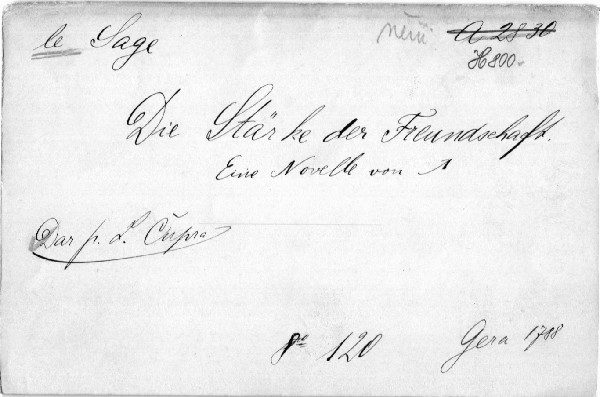 le Sage
není
A 2830
H 800.
Die Stärke der Freundschaft.
Eine Novelle von
Dar p. L. Čupra
8° 120
Gera 1788